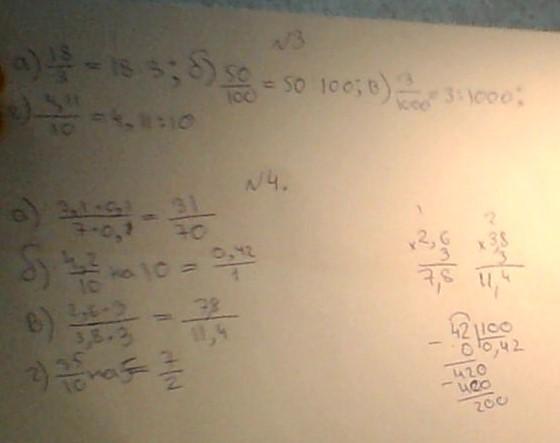 №3
а) 18/3 = 18:3; б) 50/100 = 50:100; в) 3/1000 = 3:1000;
г) 4,11/10 = 4,11:10
№4.
а) 3,1·0,1/7·0,1 = 31/70
б) 4,2/10 на 10 = 0,42/1
в) 2,6·3/3,8·3 = 78/11,4
г) 35/10 на 5 = 7/2
1
×2,6
3
7,8
2
×38
3
11,4
42|100
- 0 0,42
420
-400
200